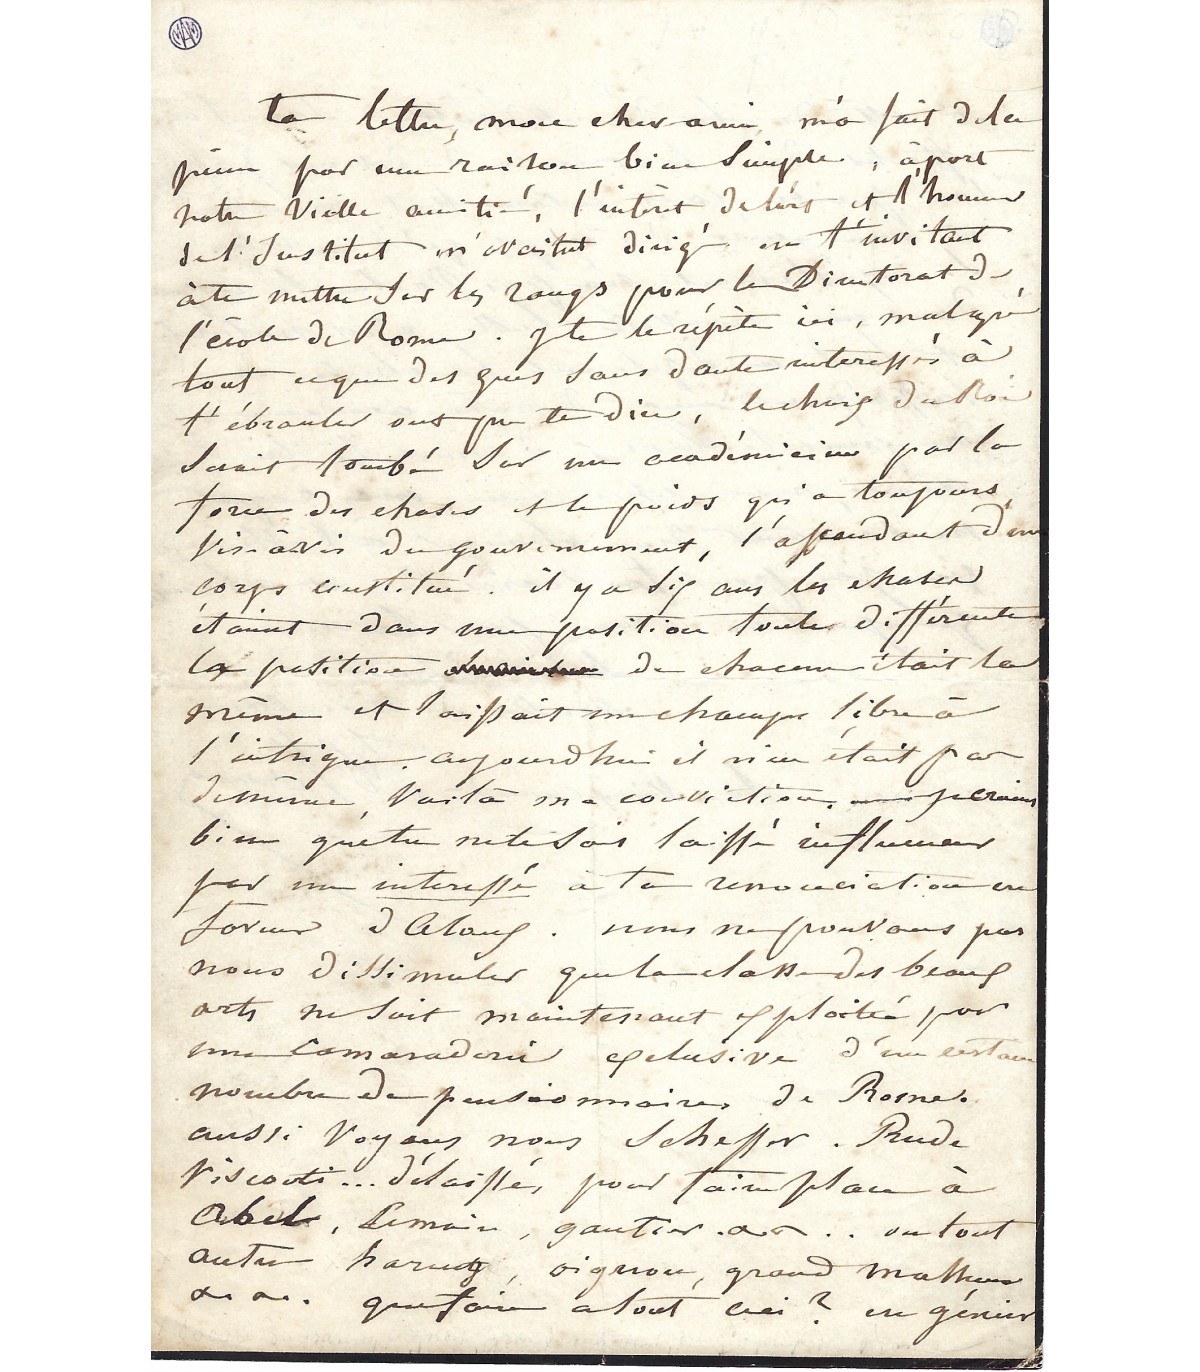 ta lettre, mon cher ami, m'a fait de la
peine par une raison bien simple, àpart
notre vielle amitié, l'intéret de l'art et l'honneur
de l'Institut m'avaient dirigé en t'invitant
àte mettre sur les rangs pour le Directorat de
l'école de Rome. Je te le répète ici, malgré
tout ceque des gens sans doute interessés à
t'ébranler ont pu te dire, le choix du Roi
serait tombé sur un académicien par la
force des choses et le poids qu'a toujours,
vis-à-vis du gouvernement, l'ascendant d'un
corps constitué. il y a six ans les choses
étaient dans une position toute différente
la position de chacun était la
même et laissait un champ libre à
l'intrigue. aujourdhui il n'en était pas
demême, voilà ma conviction. je crains
bien que tu ne te sois laissé influencer
par un interessé à ta renonciation en
faveur d'Alaux. nous ne pouvons pas
nous dissimuler que la classe des beaux
arts ne soit maintenant exploitée par
une camaraderie exclusive d'un certain
nombre de pensionnaires de Rome.
aussi voyons nous Scheffer. Rude
Visconti... délaissés, pour faire place à
Abel, Lemaire, gautier .. ou tout
autre, oignon, grand
que faire a tout ceci? en gémir